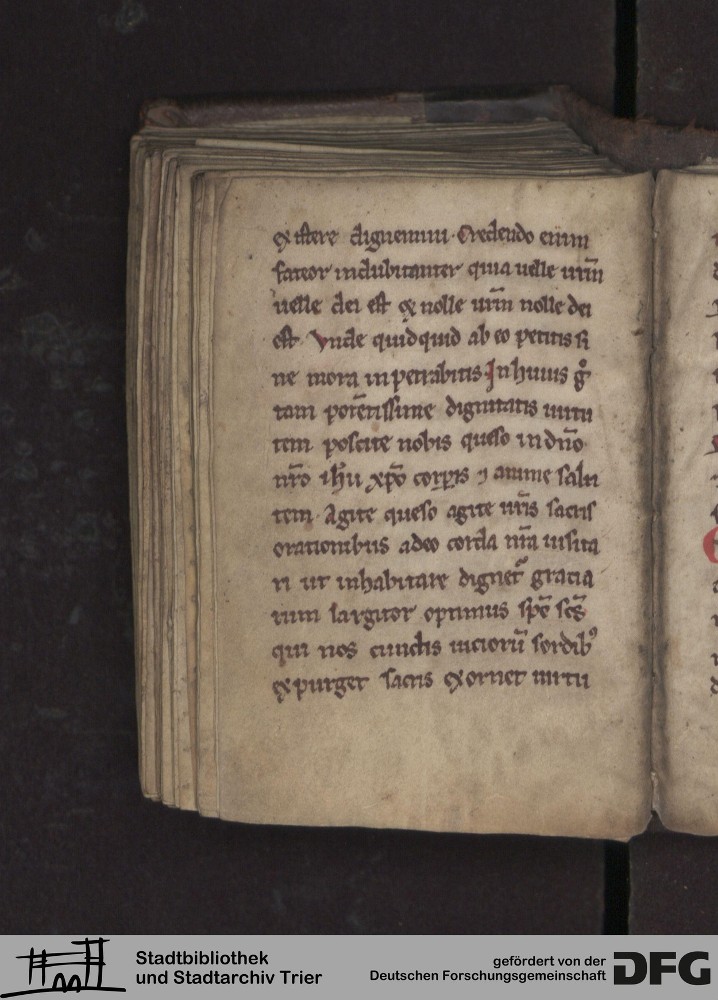 existere dignemini. Credendo enim
fateor indubitanter quia uelle urm̄
uelle dei est & nolle urm̄ nolle dei
est. Vnde quidquid ab eo petitis si
ne mora inpetrabitis. In huius gͦ
tam potētissime dignitatis uirtu
tem poscite nobis queso in dn̄o
nr̄o ih̄u xp̄o corꝑis ⁊ anime salu
tem. Agite queso agite ur̄is sacris
orationibus adeo corda nr̄a uisita
ri ut inhabitare dignet᷑ gratia
rum largitor optimus sp̄c sc̄s
qui nos cunctis uicioru̅ sordibꝰ
expurget sacris exornet uirtu
Stadtbibliothek
und Stadtarchiv Trier
gefördert von der
Deutschen Forschungsgemeinschaft
DFG